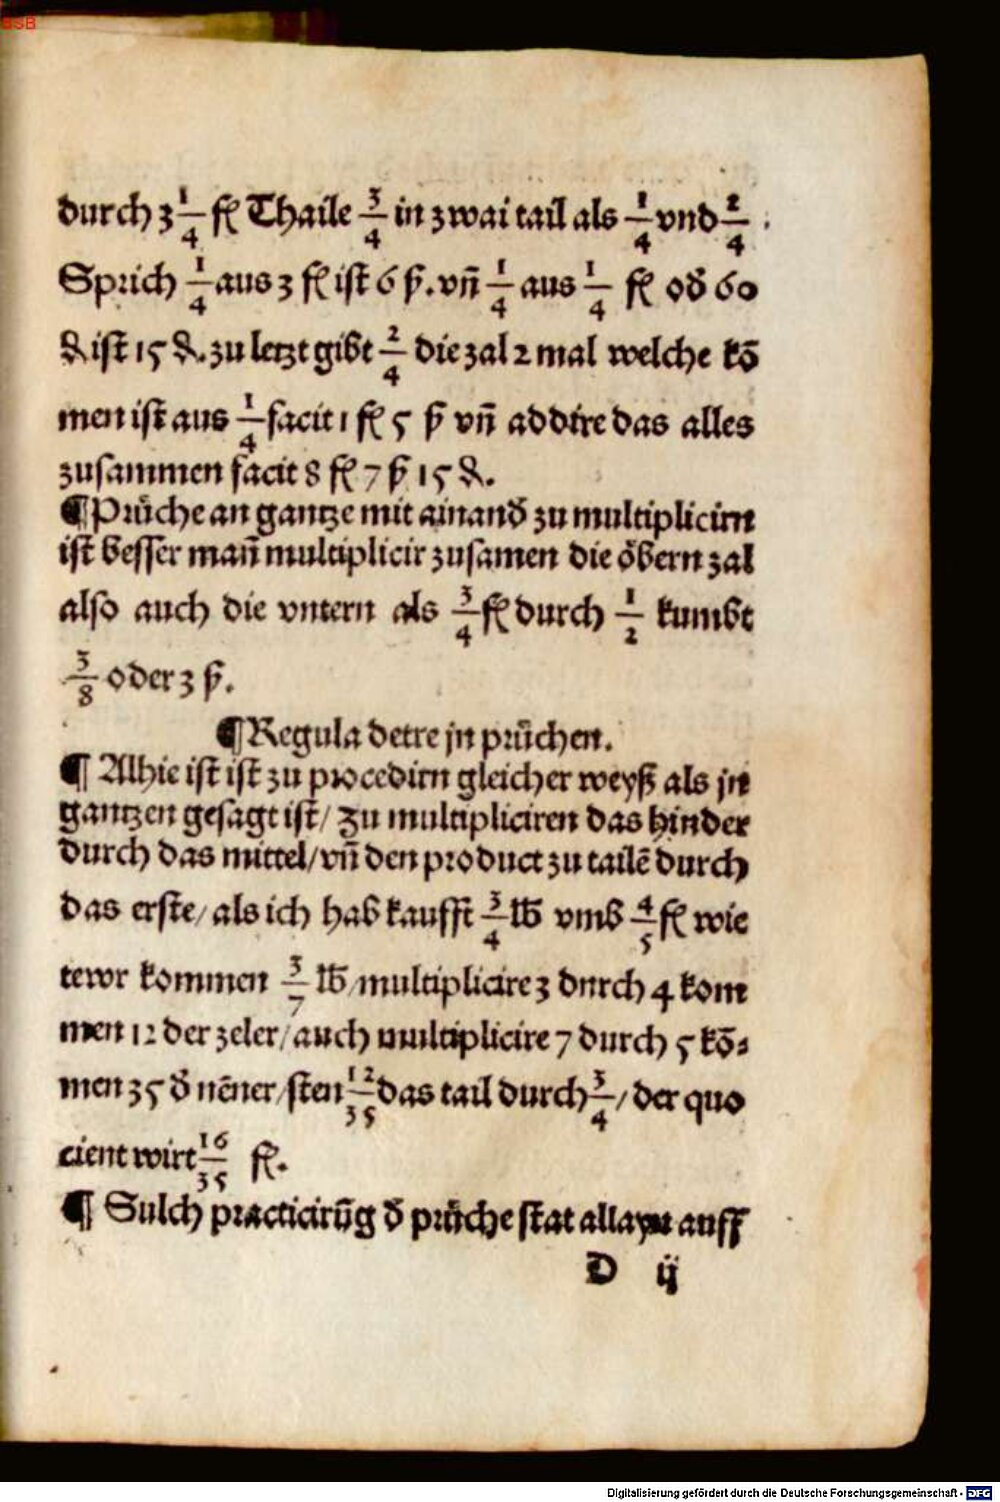 BSB
durch 3 1/4 fl Thaile 3/4 in zwai tail als 1/4 vnd 2/4 .
Sprich 1/4 aus 3 fl ist 6 ß. vn̄ 1/4 aus 1/4 fl od̄ 60
₰ ist 15 ₰. zu letzt gibt 2/4 die zal 2 mal welche kō
men ist aus 1/4 facit 1 fl 5 ß vn̄ addire das alles
zusammen facit 8 fl 7 ß 15 ₰.
¶ Prüche an gantze mit ainand̄ zu multiplicirn
ist besser man̄ multiplicir zusamen die öbern zal
also auch die vntern als 3/4 fl durch 1/2 kumbt
3/8 oder 3 ß.
¶ Regula detre jn prüchen.
¶ Alhie ist ist zu procedirn gleicher weyß als jn
gantzen gesagt ist/ zu multipliciren das hinder
durch das mittel/ vn̄ den product zu tailē durch
das erste/ als ich hab kaufft 3/4 lb vmb 4/5 fl wie
tewr kommen 3/7 lb/ multiplicire 3 durch 4 kom
men 12 der zeler/ auch multiplicire 7 durch 5 kō⸗
men 35 d̄ nēner/ sten 12/35 das tail durch 3/4/ der quo
cient wirt 16/35 fl.
¶ Sulch practicirūg d̄ prüche stat allayn auff
D ij
Digitalisierung gefördert durch die Deutsche Forschungsgemeinschaft - DFG